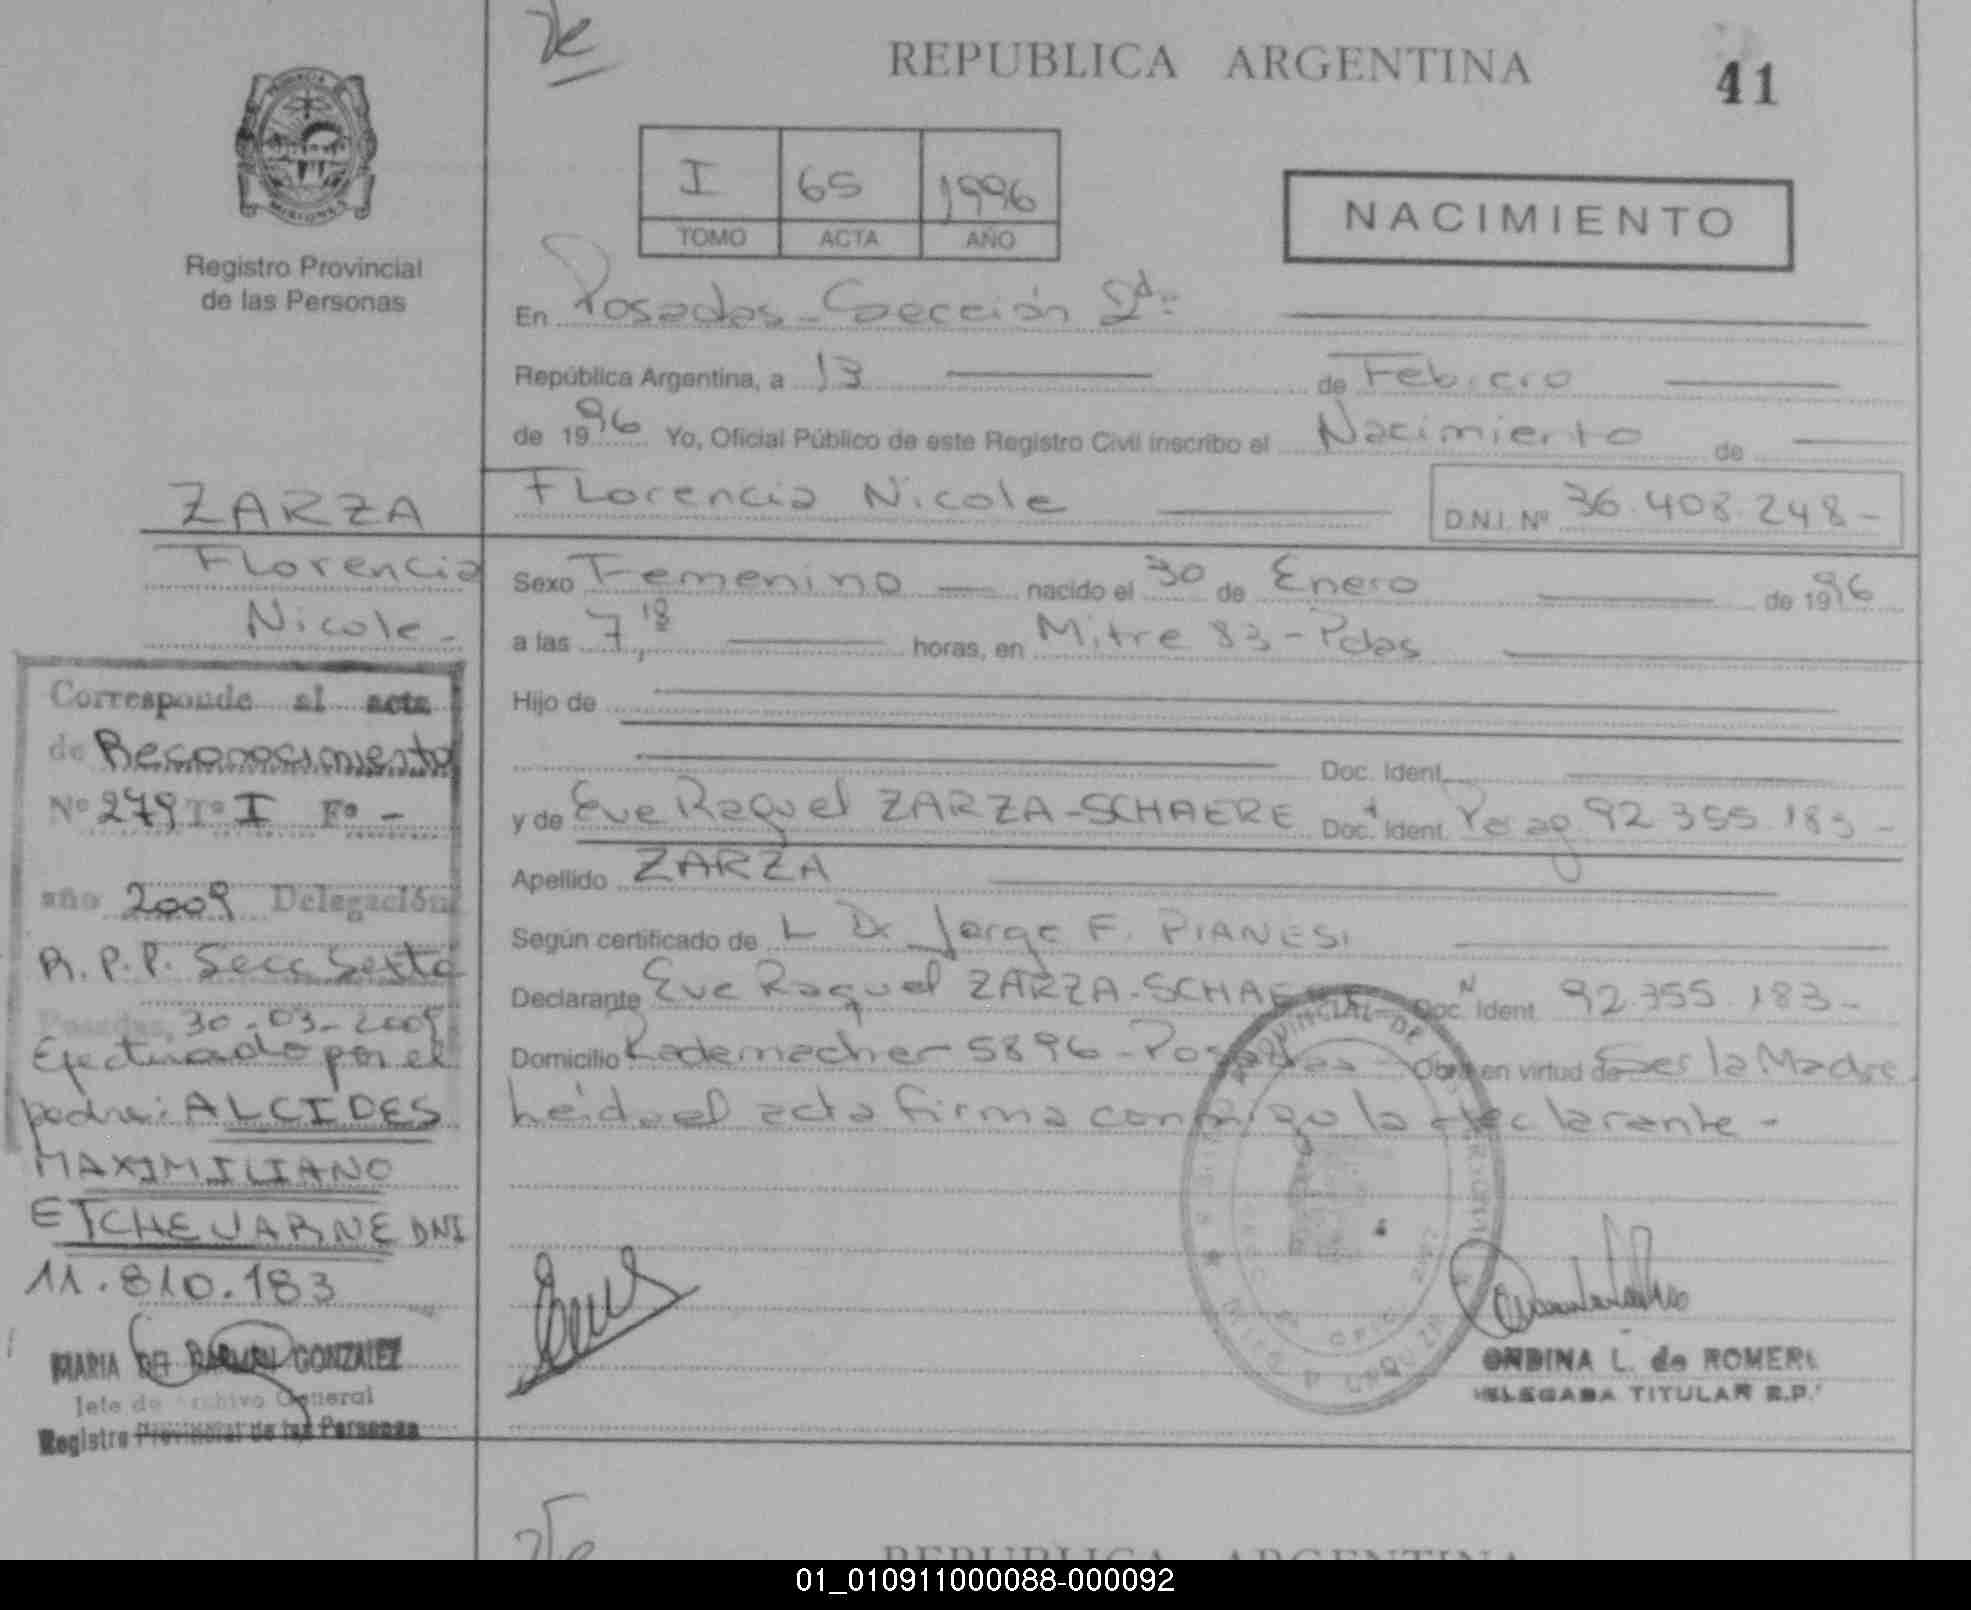 REPUBLICA ARGENTINA
41
MISIONES
Registro Provincial
de las Personas
I 65 1996
TOMO ACTA AÑO
NACIMIENTO
En Posadas - Sección 2da
República Argentina, a 13 de Febrero
de 1996 Yo, Oficial Público de este Registro Civil inscribo el Nacimiento de
Florencia Nicole D.N.I. Nº 36.408.248-
ZARZA
Florencia
Nicole-
Sexo Femenino nacido el 30 de Enero de 1996
a las 7,18 horas, en Mitre 83 - Pdas
Hijo de
Doc. Ident.
y de Eve Raquel ZARZA-SCHAERE Doc. Ident. Parag 92 355.183-
Apellido ZARZA
Según certificado de L Dr Jorge F. PIANESI
Declarante Eve Raquel ZARZA-SCHAERE Doc. Ident. 92.355.183-
Domicilio Rademacher 5896 - Posadas - Obra en virtud de Ser la Madre
heída el acta firma conmigo la declarante -
Corresponde al acta
de Reconocimiento
Nº 279 Tº I Fº -
año 2009 Delegación
R.P.P. Secc Sexta
Posadas, 30-03-2009
Efectuado por el
padre: ALCIDES
MAXIMILIANO
ETCHEVARNE DNI
11.810.183
MARIA DEL CARMEN GONZALEZ
Jefe de Archivo General
Registro Provincial de las Personas
PROVINCIAL DE
ONDINA L. de ROMERO
DELEGADA TITULAR R.P.
REPUBLICA ARGENTINA
01_010911000088-000092